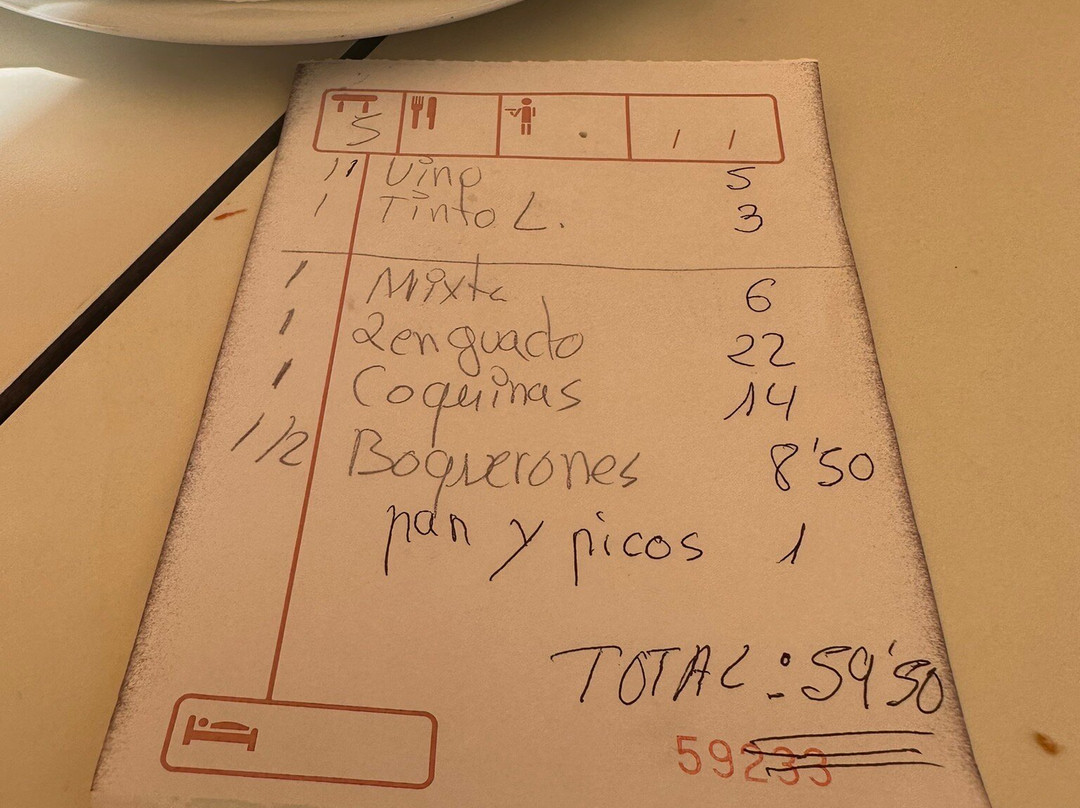 5 1 1
11 Vino 5
1 Tinto L. 3
1 Mixta 6
1 Lenguado 22
1 Coquinas 14
1/2 Boquerones 8'50
pan y picos 1
TOTAL: 59'50
59233